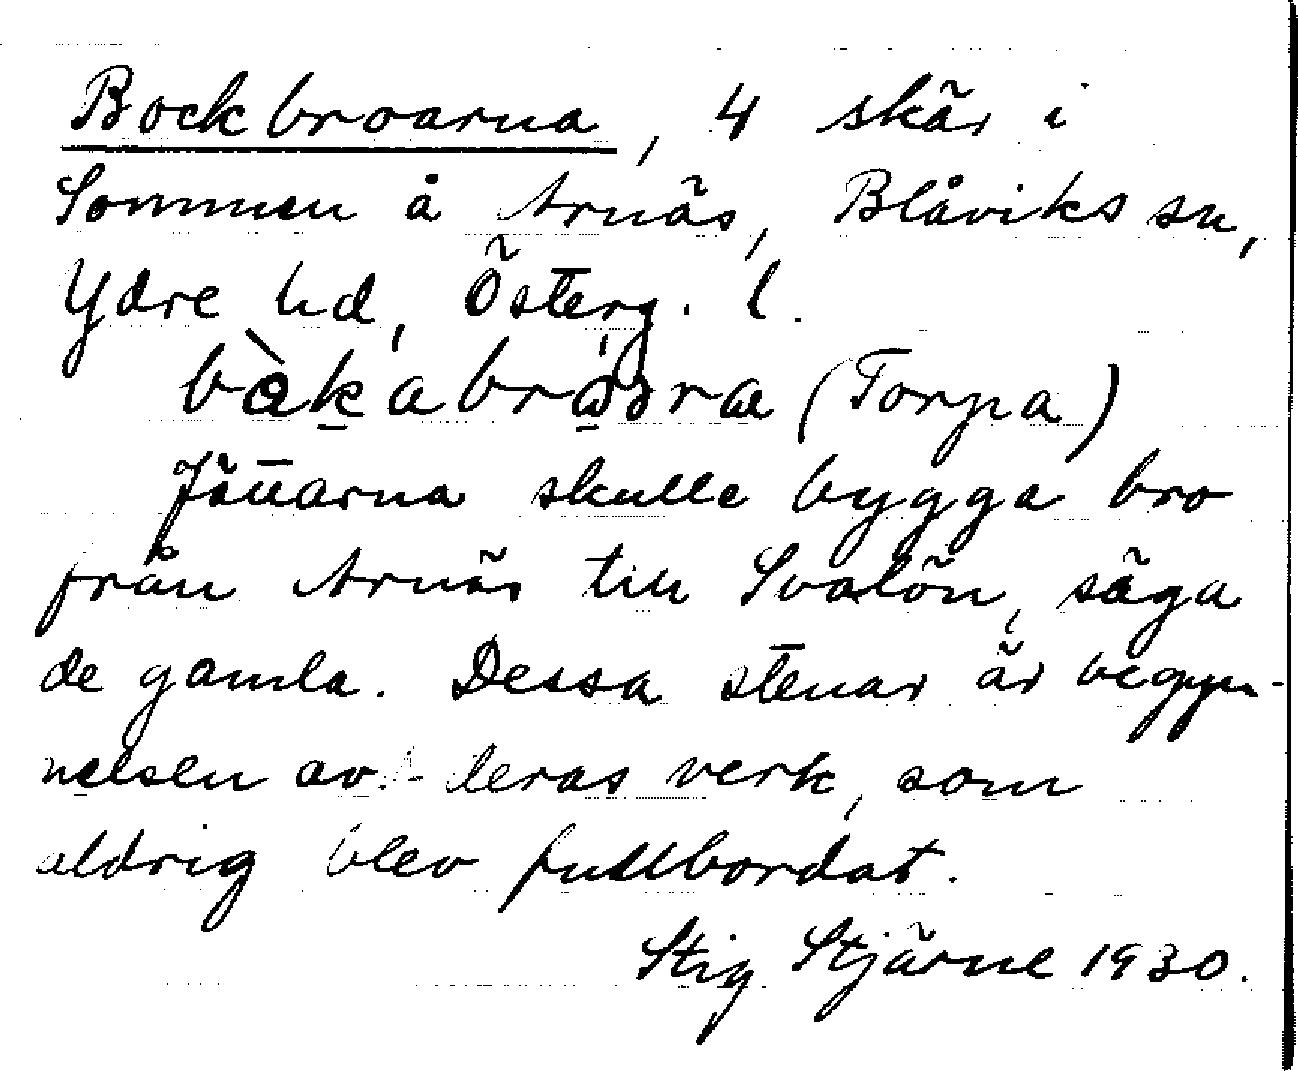 Bockbroarna, 4 skär i
Sommen å Arnäs, Blåviks sn,
Ydre hd, Österg. l.
(Torpa)
Jättarna skulle bygga bro
från Arnäs till Svalön, säga
de gamla. Dessa stenar är begyn-
nelsen av deras verk, som
aldrig blev fullbordat.
Stig Stjärne 1930.